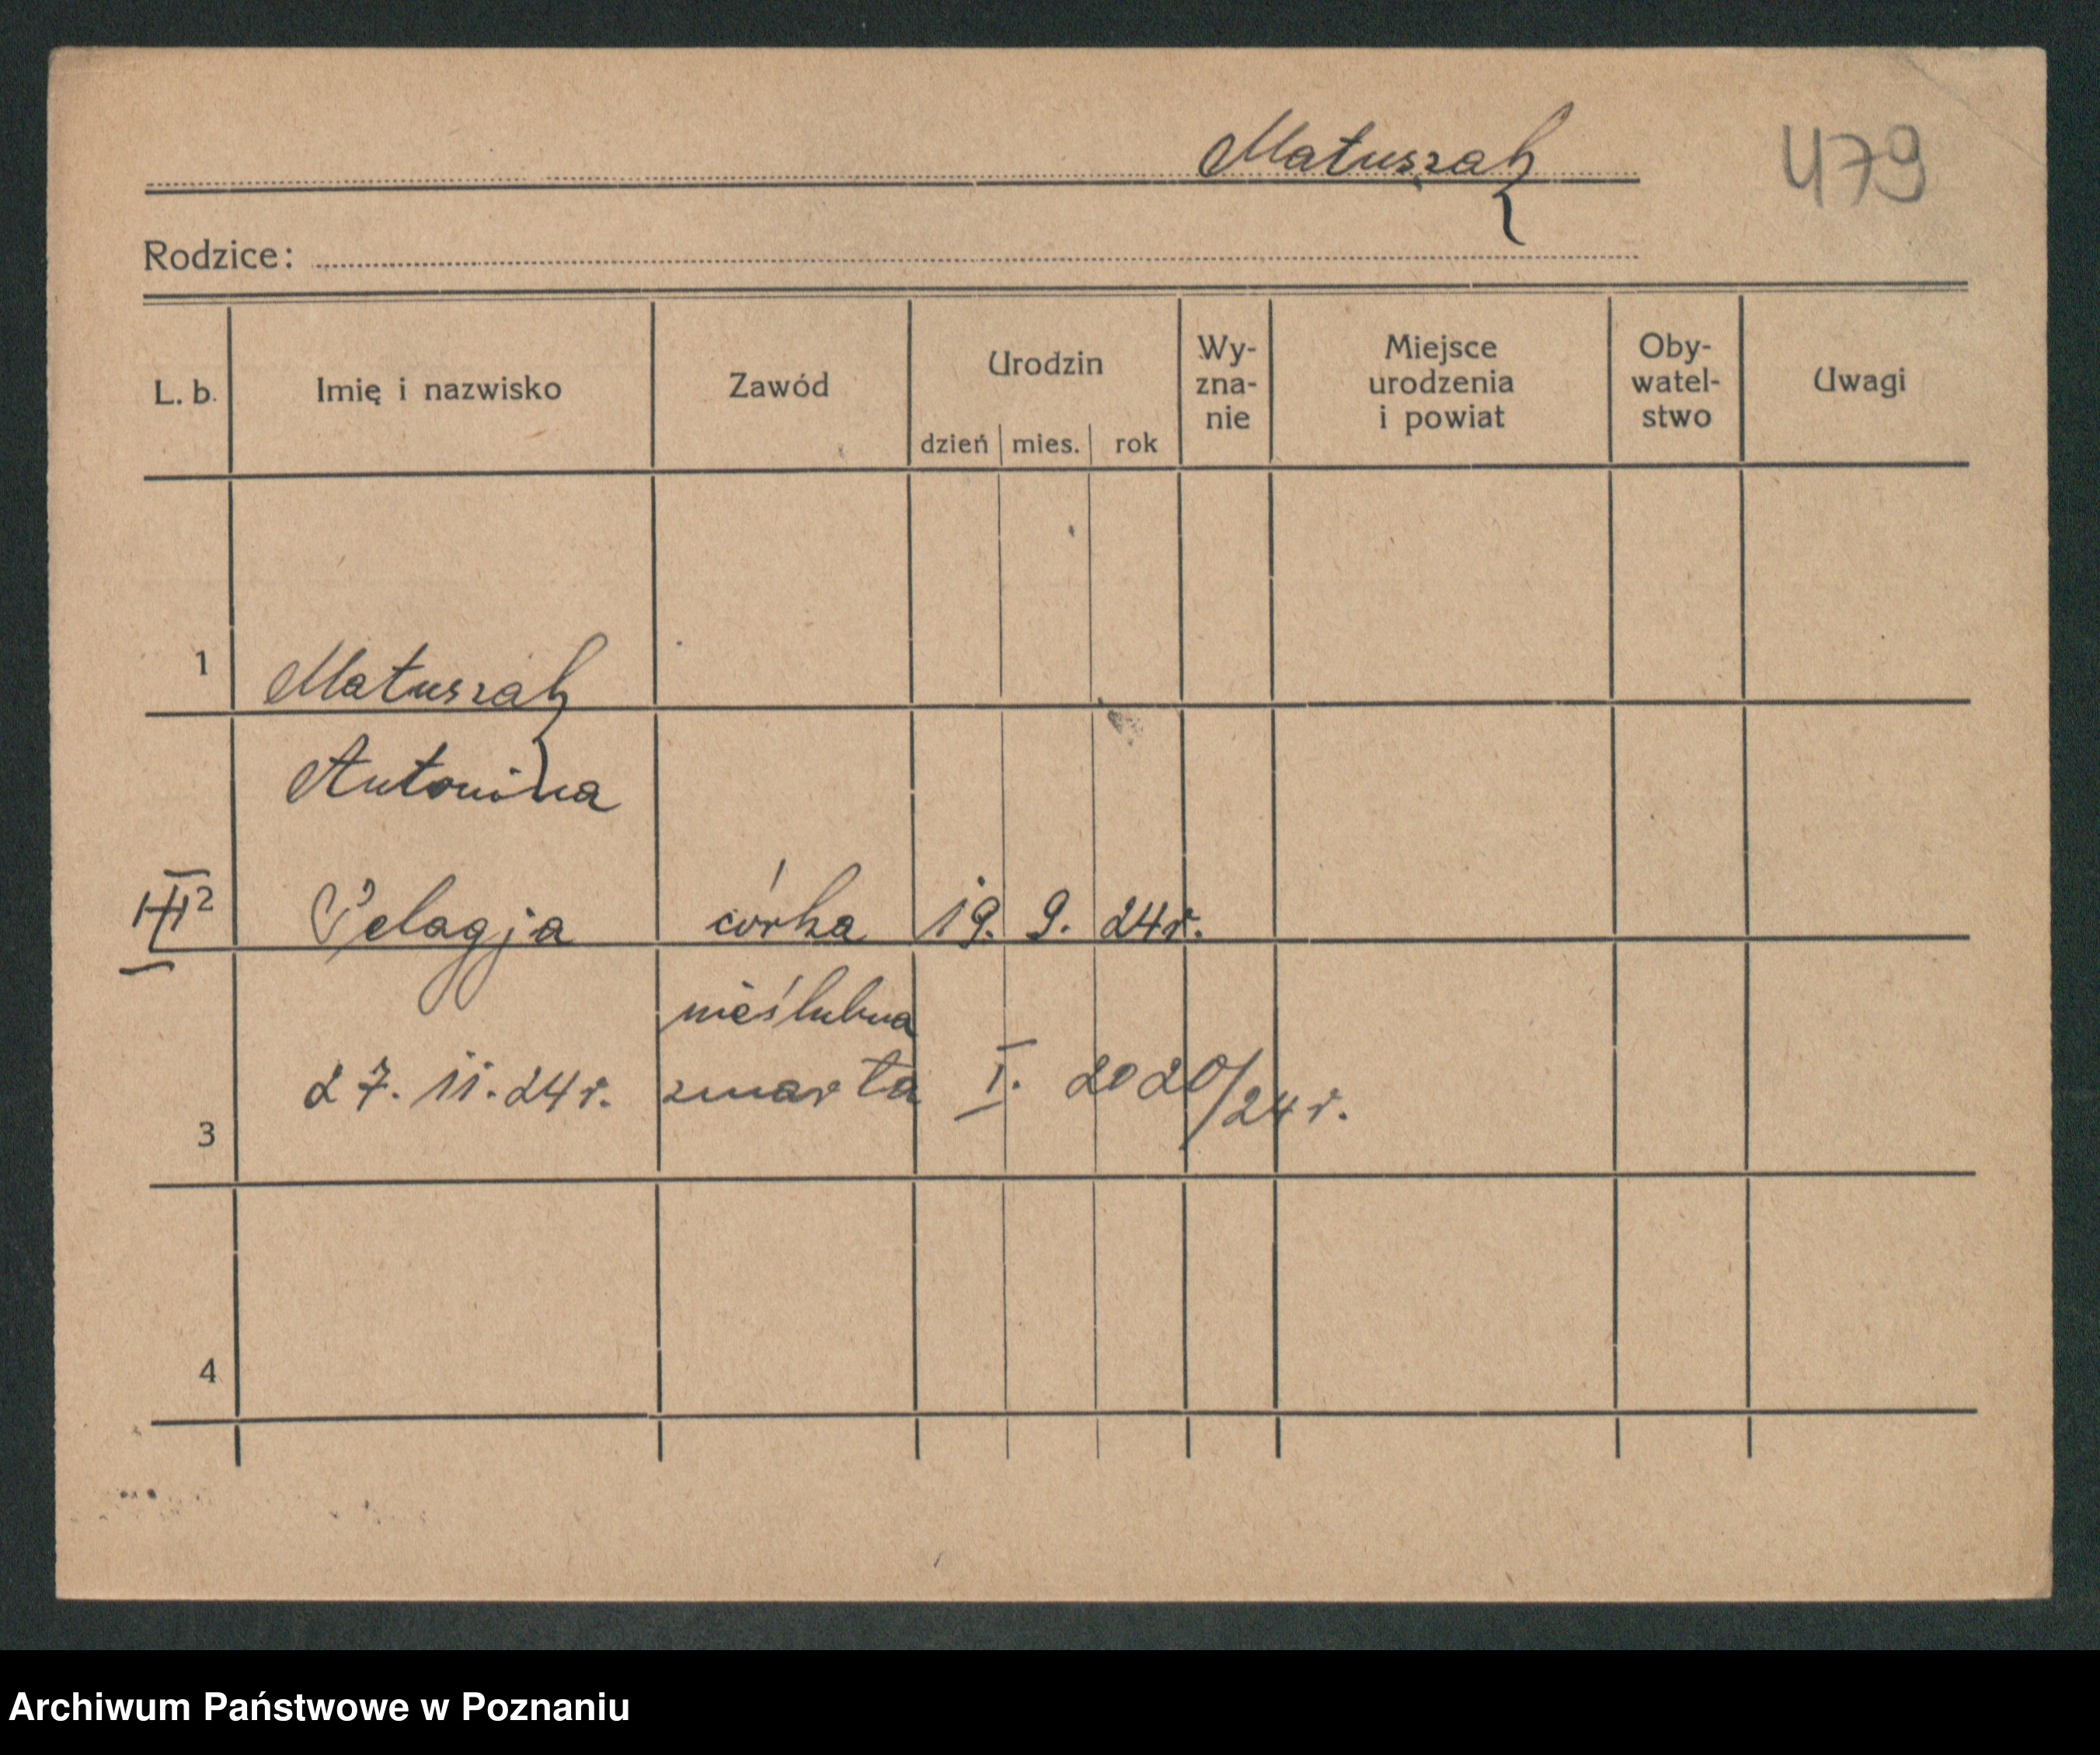 Matuszak 479
Rodzice:
L. b. Imię i nazwisko Zawód Urodzin dzień mies. rok Wy-zna-nie Miejsce urodzenia i powiat Oby-watel-stwo Uwagi
1 Matuszak
Antonina
2 Pelagja córka 19. 9. 24r.
nieślubna
27. 11. 24r. zmarta I. 2020/24r.
3
4
Archiwum Państwowe w Poznaniu